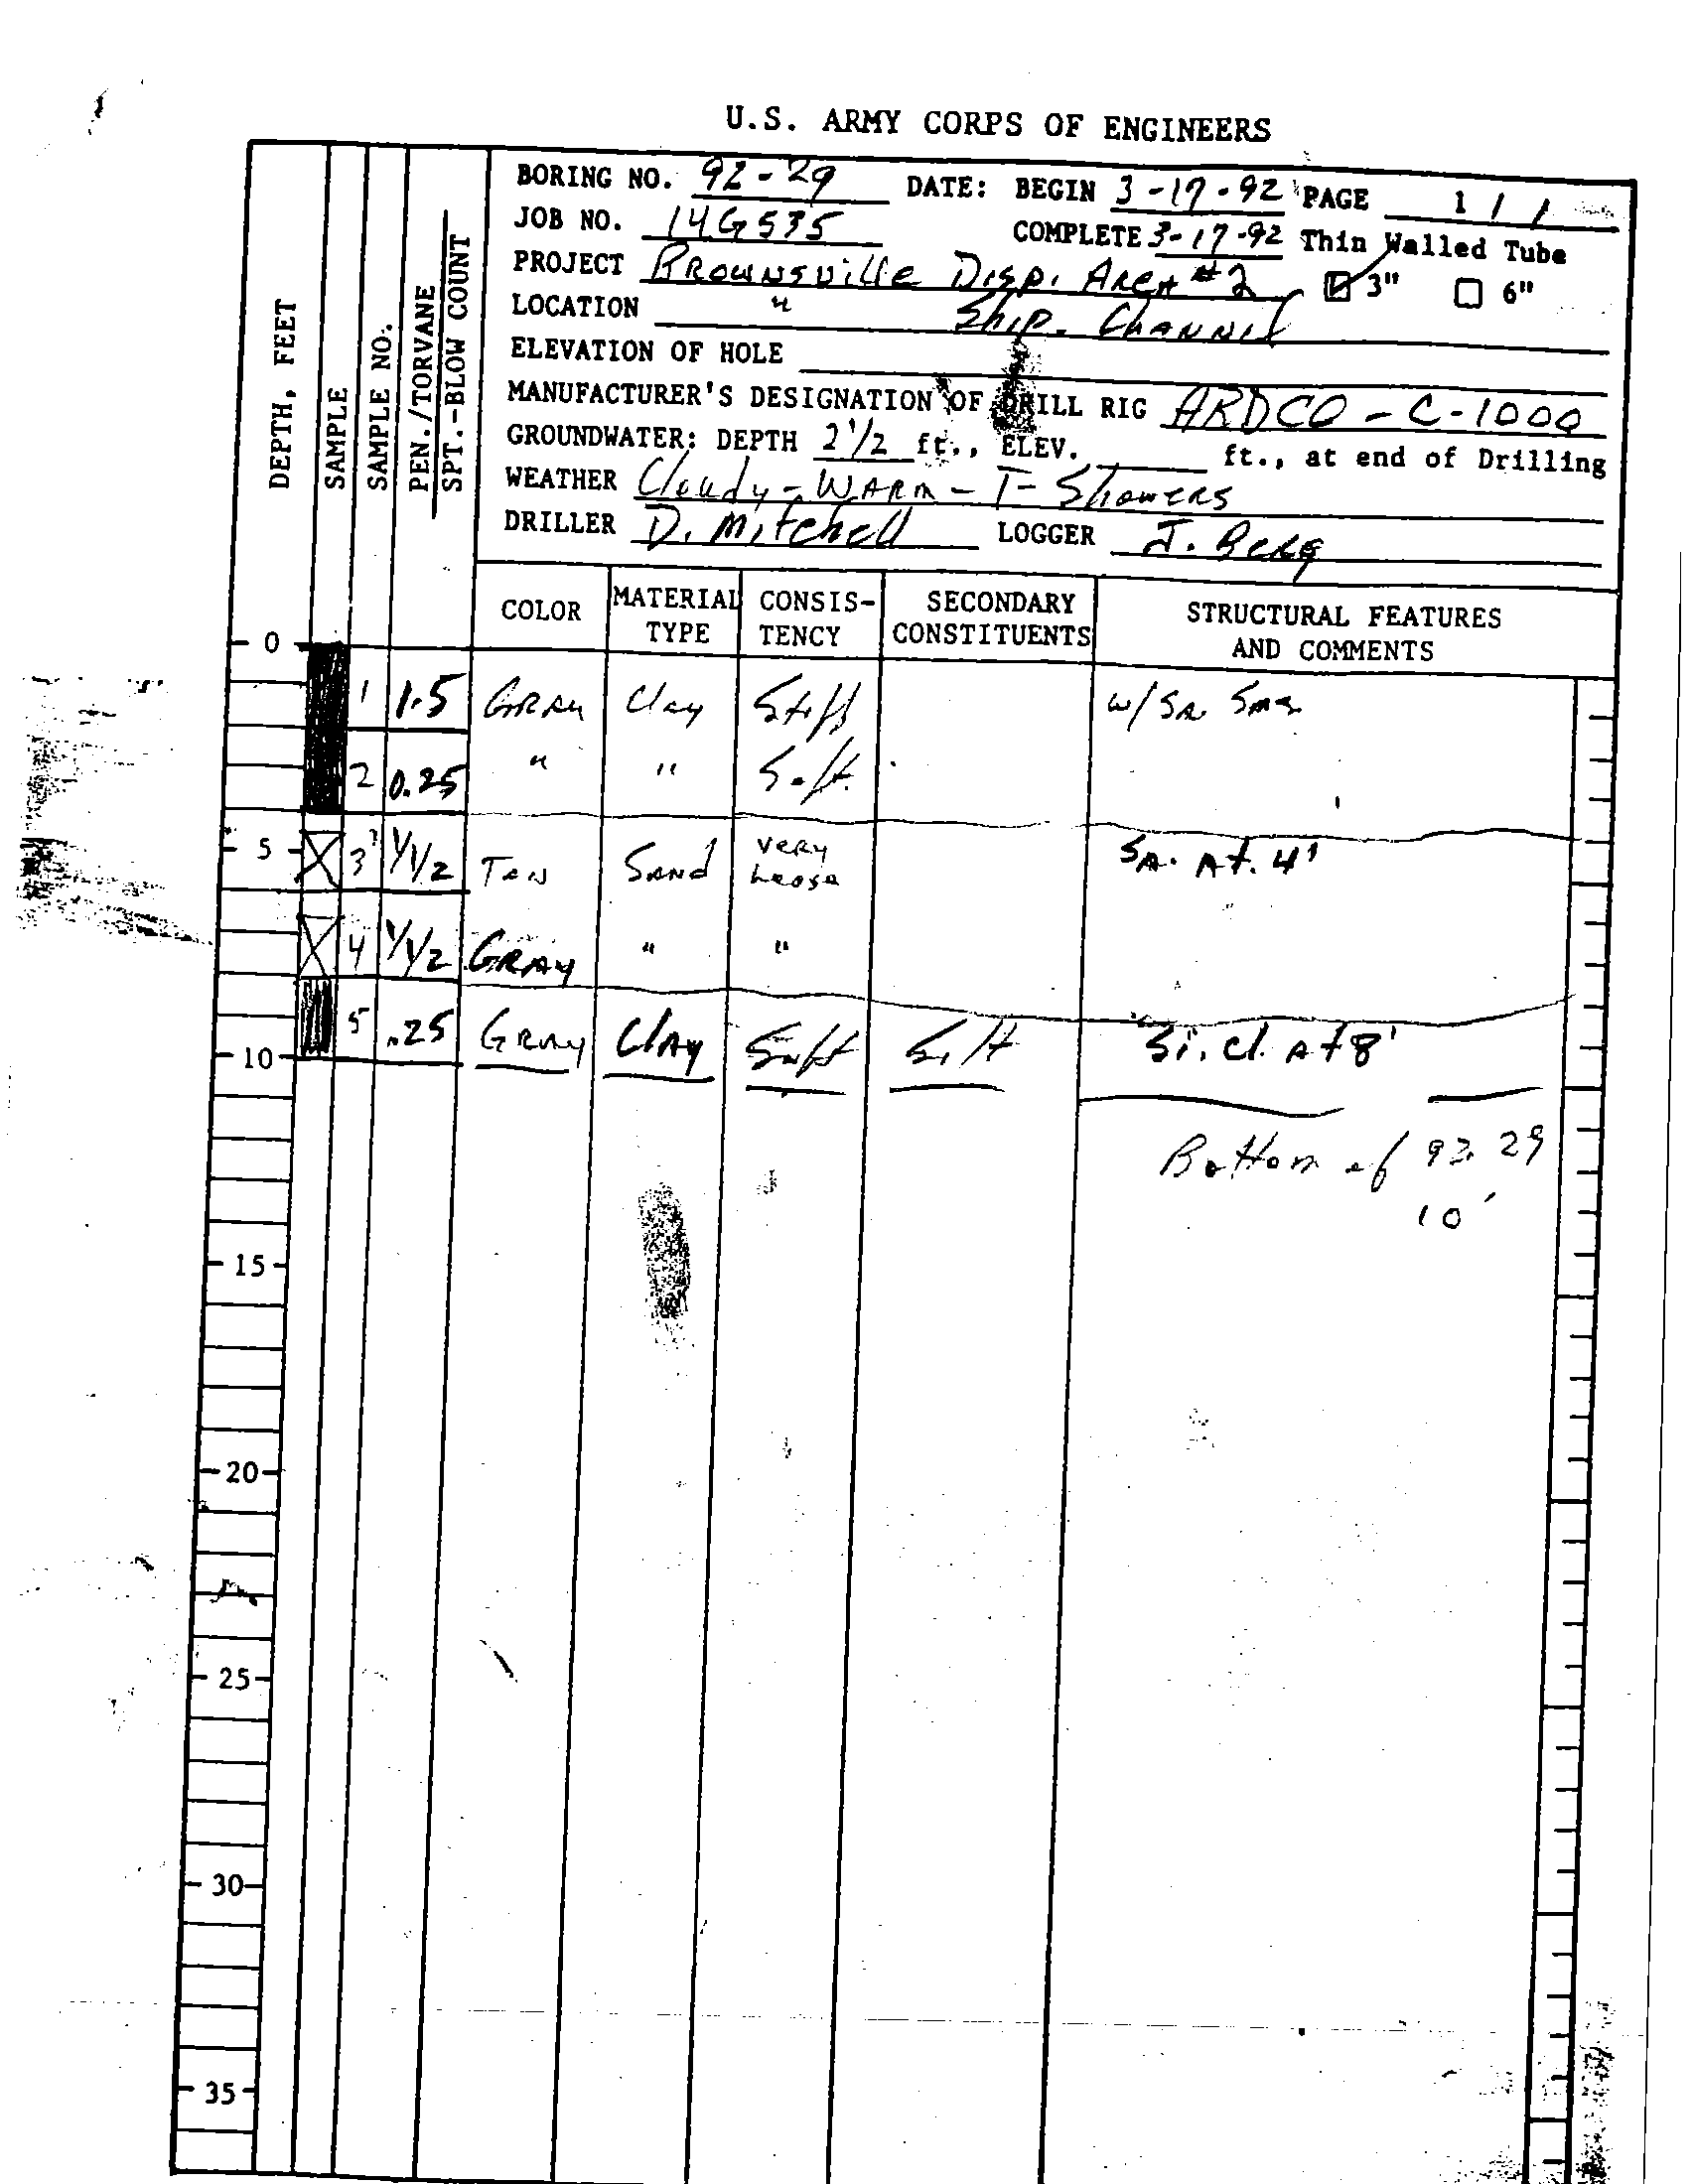 U.S. ARMY CORPS OF ENGINEERS
BORING NO. 92-29 DATE: BEGIN 3-17-92 PAGE 1 / 1
JOB NO. 14G535 COMPLETE 3-17-92 Thin Walled Tube
PROJECT Brownsville Disp. Area #2 3" 6"
LOCATION " Ship. Channel
ELEVATION OF HOLE
MANUFACTURER'S DESIGNATION OF DRILL RIG ARDCO - C-1000
GROUNDWATER: DEPTH 2 1/2 ft., ELEV. ft., at end of Drilling
WEATHER Cloudy - WARM - T- Showers
DRILLER D. Mitchell LOGGER J. Berg
DEPTH, FEET
SAMPLE
SAMPLE NO.
PEN./TORVANE
SPT.-BLOW COUNT
COLOR MATERIAL TYPE CONSIS-TENCY SECONDARY CONSTITUENTS STRUCTURAL FEATURES AND COMMENTS
0
1 1.5 GRAY Clay Stiff w/ SA. Sms
2 0.25 " " Soft
5 3 1/1/2 TAN SAND Very Loose SA. At. 4'
4 1/1/2 GRAY " "
5 .25 GRAY CLAY Soft Silt Si. cl. At 8'
10
Bottom of 92-29
10'
15
20
25
30
35